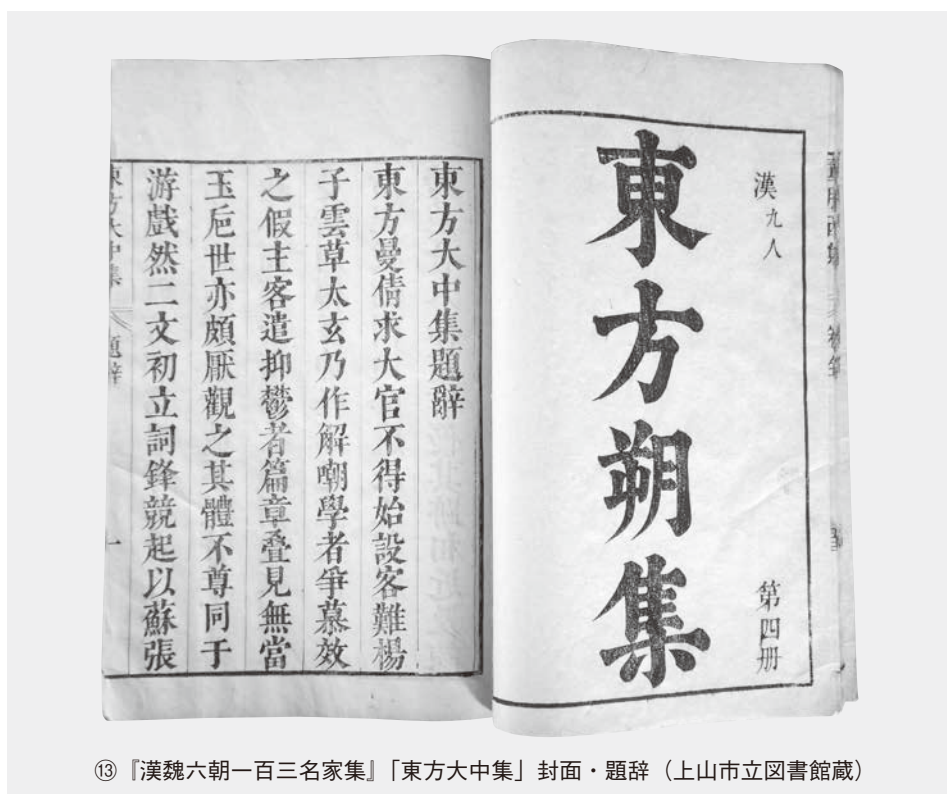 漢九人
東方朔集
第四册
東方大中集題辭
東方曼倩求大官不得始設客難楊
子雲草太玄乃作解嘲學者爭慕效
之假主客遣抑鬱者篇章疊見無當
玉巵世亦頗厭觀之其體不尊同于
游戲然二文初立詞鋒競起以蘇張
東方大中集 題辭 一
⑬『漢魏六朝一百三名家集』「東方大中集」封面・題辞（上山市立図書館蔵）